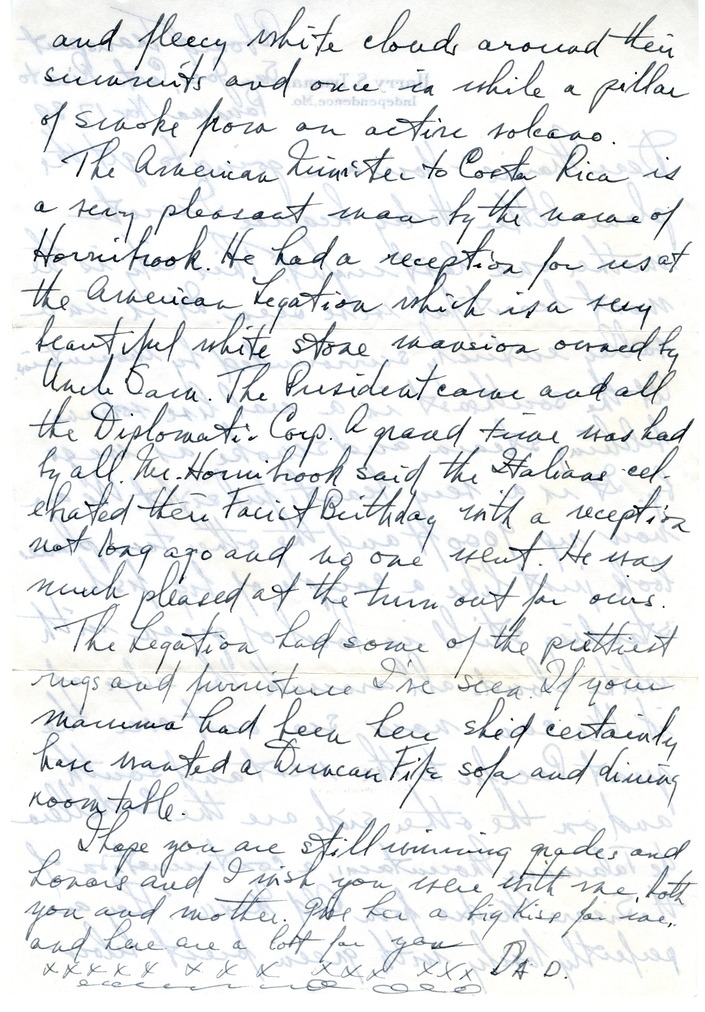 and fleecy white clouds around their
summits and once in while a pillar
of smoke from an active volcano.
The American Minister to Costa Rica is
a very pleasant man by the name of
Hornibrook. He had a reception for us at
the American Legation which is a very
beautiful white stone mansion owned by
Uncle Sam. The President came and all
the Diplomatic Corp. A grand time was had
by all. Mr. Hornibrook said the Italians cel-
ebrated their Facist Birthday with a reception
not long ago and no one went. He was
much pleased at the turn out for ours.
The Legation had some of the prettiest
rugs and furniture I've seen. If your
mamma had been here she'd certainly
have wanted a Duncan Fife sofa and dining
room table.
I hope you are still winning grades and
honors and I wish you were with me, both
you and mother. Give her a big kiss for me,
and here are a lott for you DAD.
xxxxx x x x xxx xxx
Harry S. Truman
Independence, Mo.